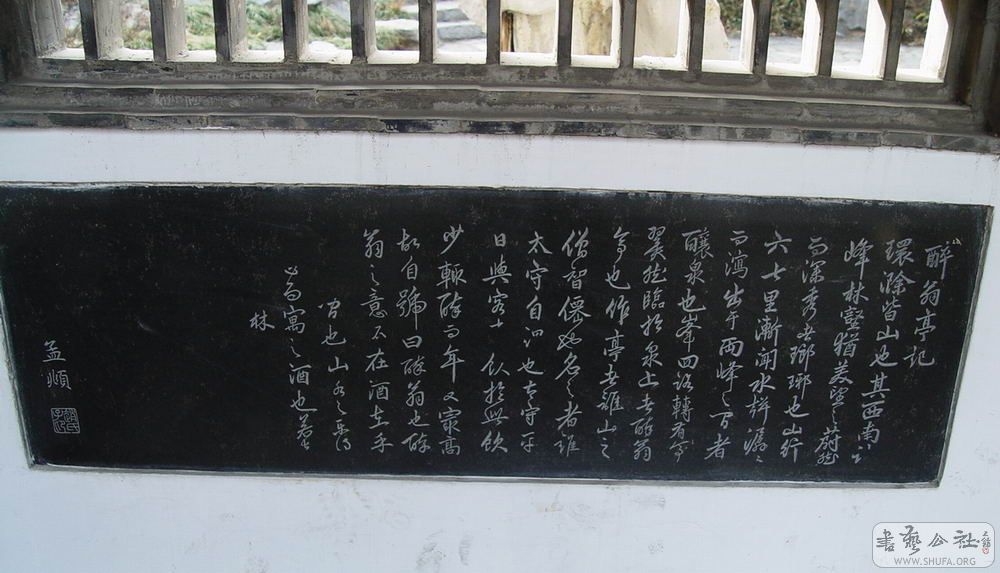 醉翁亭記
環滁皆山也其西南諸
峰林壑猶美望之蔚然
而深秀者瑯琊也山行
六七里漸聞水聲潺〻
而瀉出于兩峰之間者
釀泉也峯回路轉有亭
翼然臨於泉上者醉翁
亭也作亭者誰山之
僧智僊也名之者誰
太守自謂也太守平
日與客飲於此飲
少輒醉而年又最高
故自號曰醉翁也醉
翁之意不在酒在乎
間也山水之
而寓之酒也若
林
孟頫
趙氏子昂
書藝公社
WWW.SHUFA.ORG